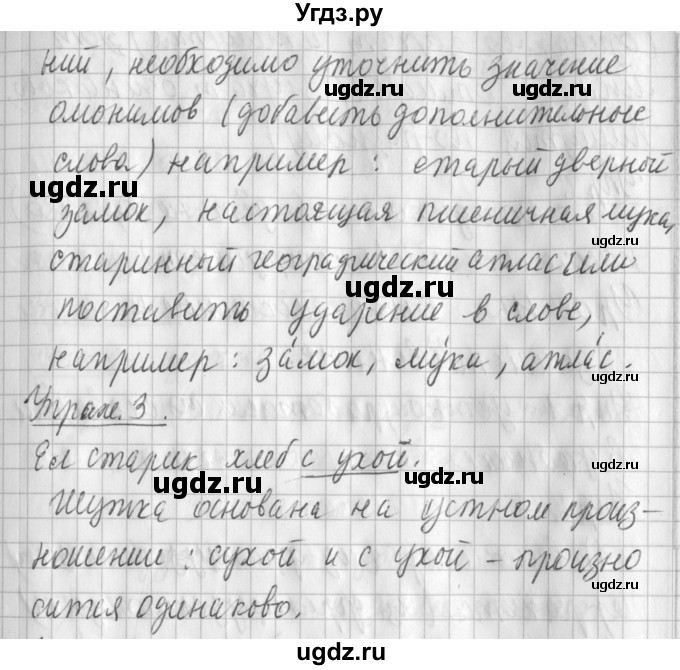 Угдз.ру
ний, необходимо уточнить значение
омонимов (добавить дополнительные
слова) например: старый дверной
замок, настоящая пшеничная мука,
старинный географический атлас или
поставить ударение в слове,
например: за́мок, му́ка, атла́с.
Упраж. 3.
Ел старик хлеб с ухой.
Шутка основана на устном произ-
ношении: сухой и с ухой - произно
сится одинаково.
угдз.ру
угдз.ру
угдз.ру
угдз.ру
угдз.ру
угдз.ру
угдз.ру
угдз.ру
угдз.ру
угдз.ру
угдз.ру